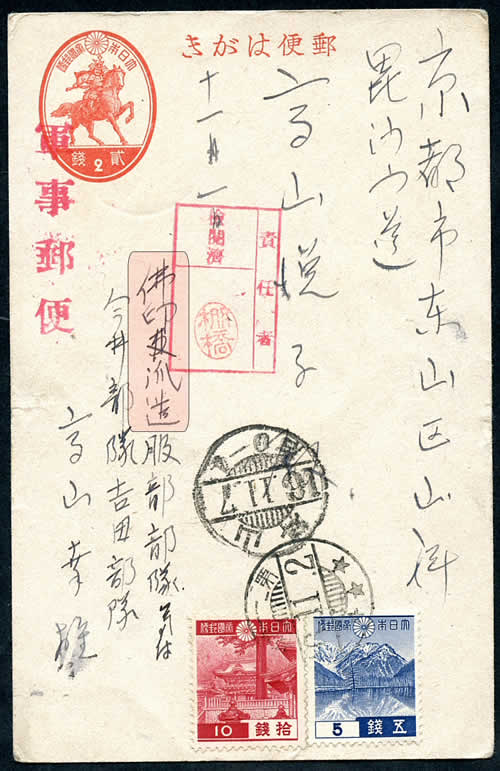 郵便はがき
大日本帝國郵便
貳錢
2
軍事郵便
京都市东山区山科
高山悦子
十一月一
責任者
検閲濟
棚橋
佛印派遣服部部隊
今井部隊吉田部隊
高山幸雄
16.11.7
大日本帝國郵便
拾錢
10
大日本帝國郵便
五錢
5